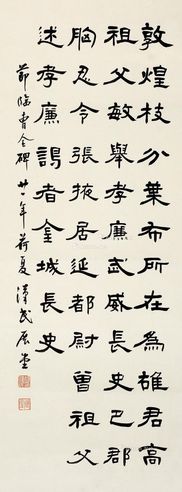 敦煌枝分葉布所在為雄君高
祖父敏舉孝廉武威長史巴郡
朐忍令張掖居延都尉曾祖父
述孝廉謁者金城長史
節臨曹全碑 廿一年夏 漢民展堂